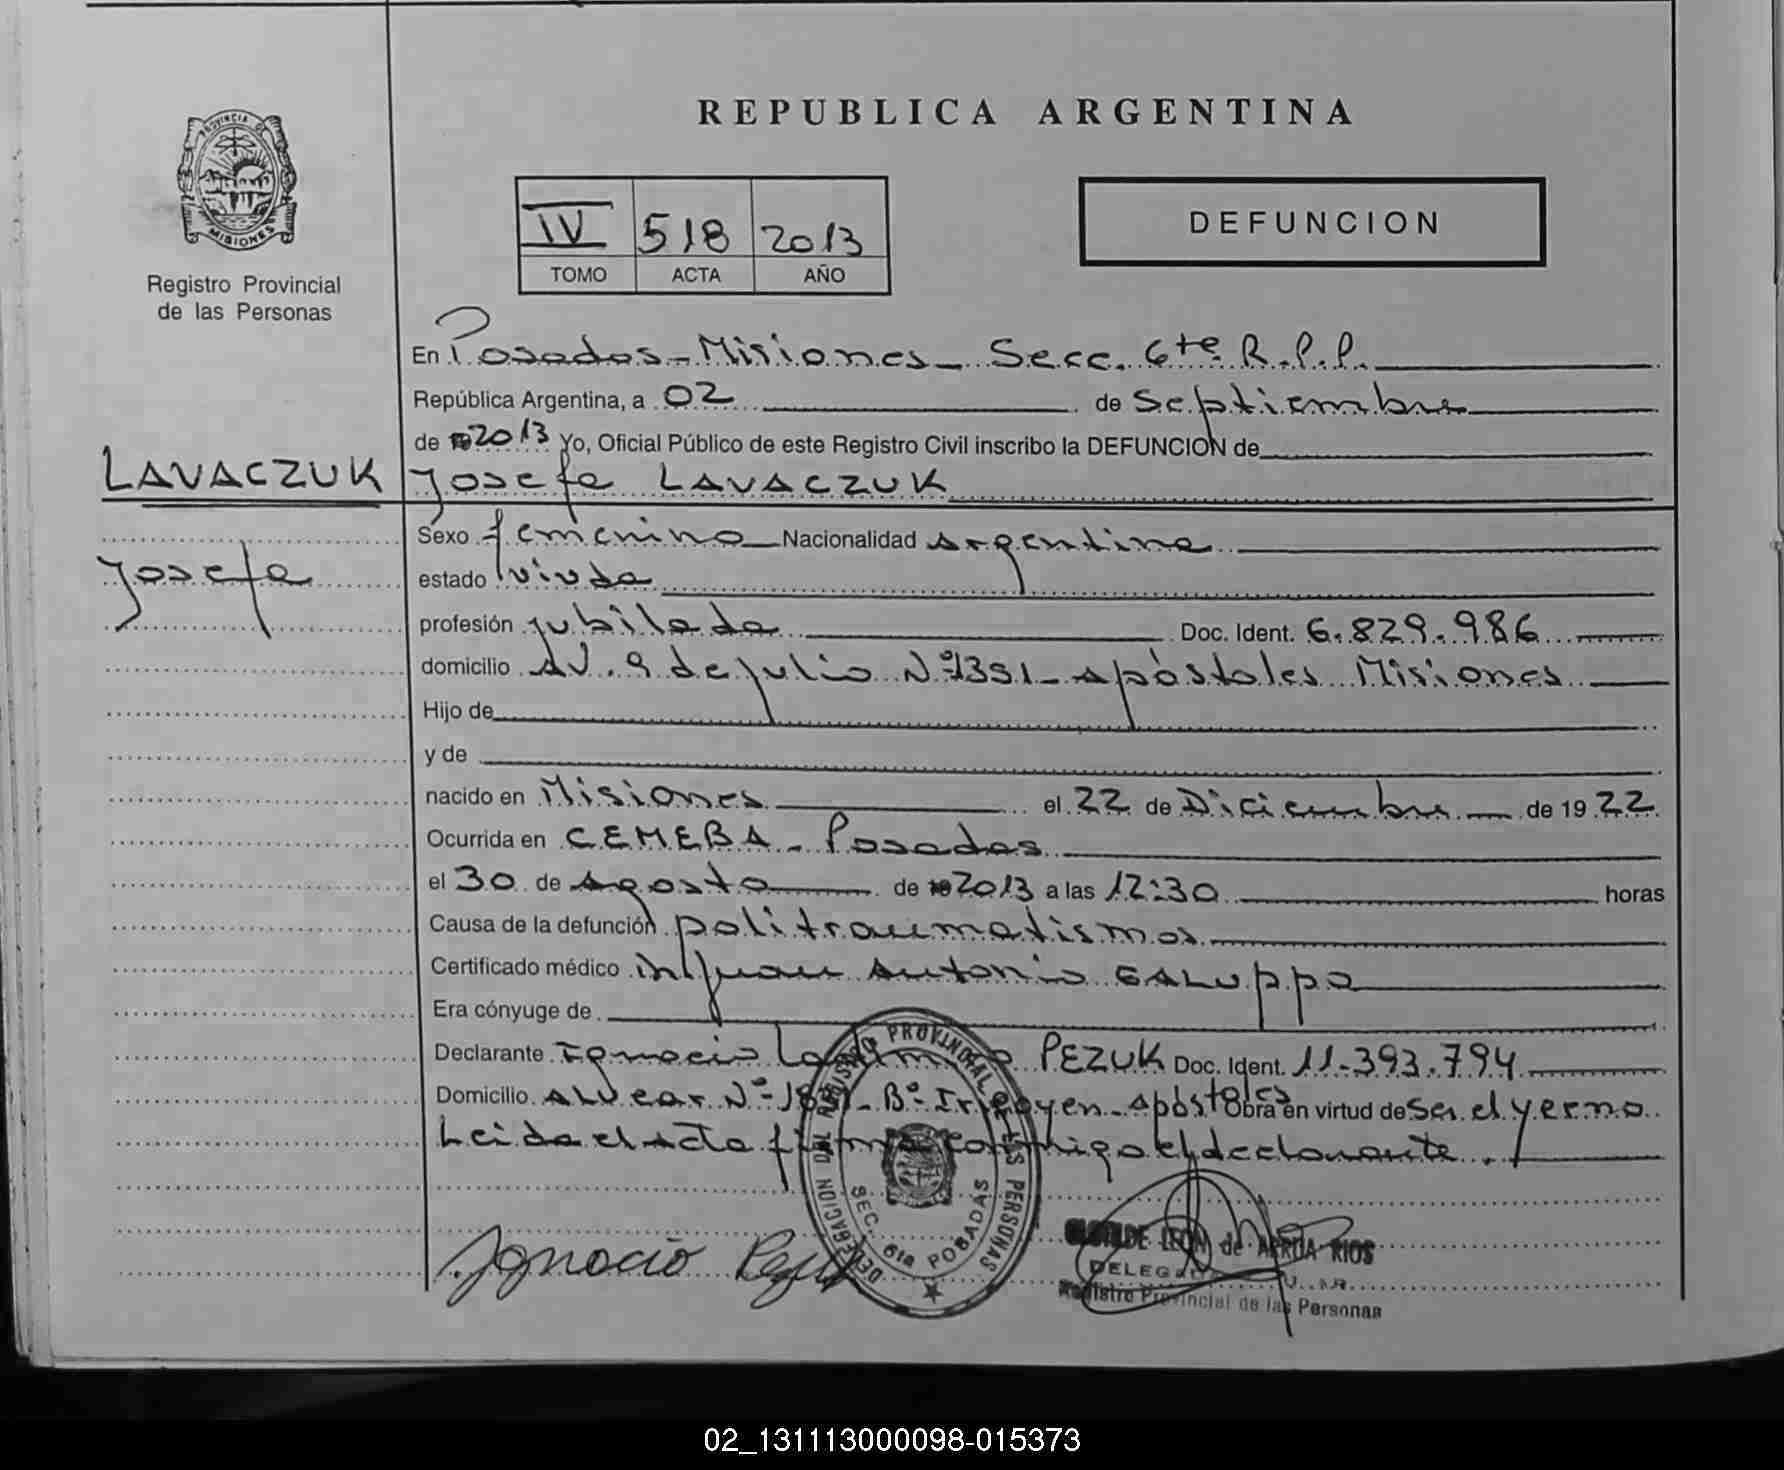 REPUBLICA ARGENTINA
PROVINCIA DE MISIONES
Registro Provincial
de las Personas
IV 518 2013
TOMO ACTA AÑO
DEFUNCION
En Posadas - Misiones - Secc. 6te R.P.P.
República Argentina, a 02 de Septiembre
de 2013 Yo, Oficial Público de este Registro Civil inscribo la DEFUNCION de
LAVACZUK
Josefa LAVACZUK
Josefa
Sexo femenino Nacionalidad Argentina
estado viuda
profesión jubilada Doc. Ident. 6.829.986
domicilio AV. 9 de julio Nº 1351 - Apóstoles Misiones
Hijo de
y de
nacido en Misiones el 22 de Diciembre de 1922
Ocurrida en CEMEBA - Posadas
el 30 de Agosto de 2013 a las 12:30 horas
Causa de la defunción politraumatismos
Certificado médico Juan Antonio GALUPPO
Era cónyuge de
Declarante Ignacio PEZUK Doc. Ident. 11.393.794
Domicilio Alvear Nº - Bº Irigoyen - Apóstoles Obra en virtud de ser el yerno
Leida el acta firma conmigo el declarante.
Ignacio Pezuk
REGISTRO PROVINCIAL DE LAS PERSONAS
DELEGACION
SEC. 6ta POSADAS
CLOTILDE LEON de ARRUA RIOS
Registro Provincial de las Personas
02_131113000098-015373